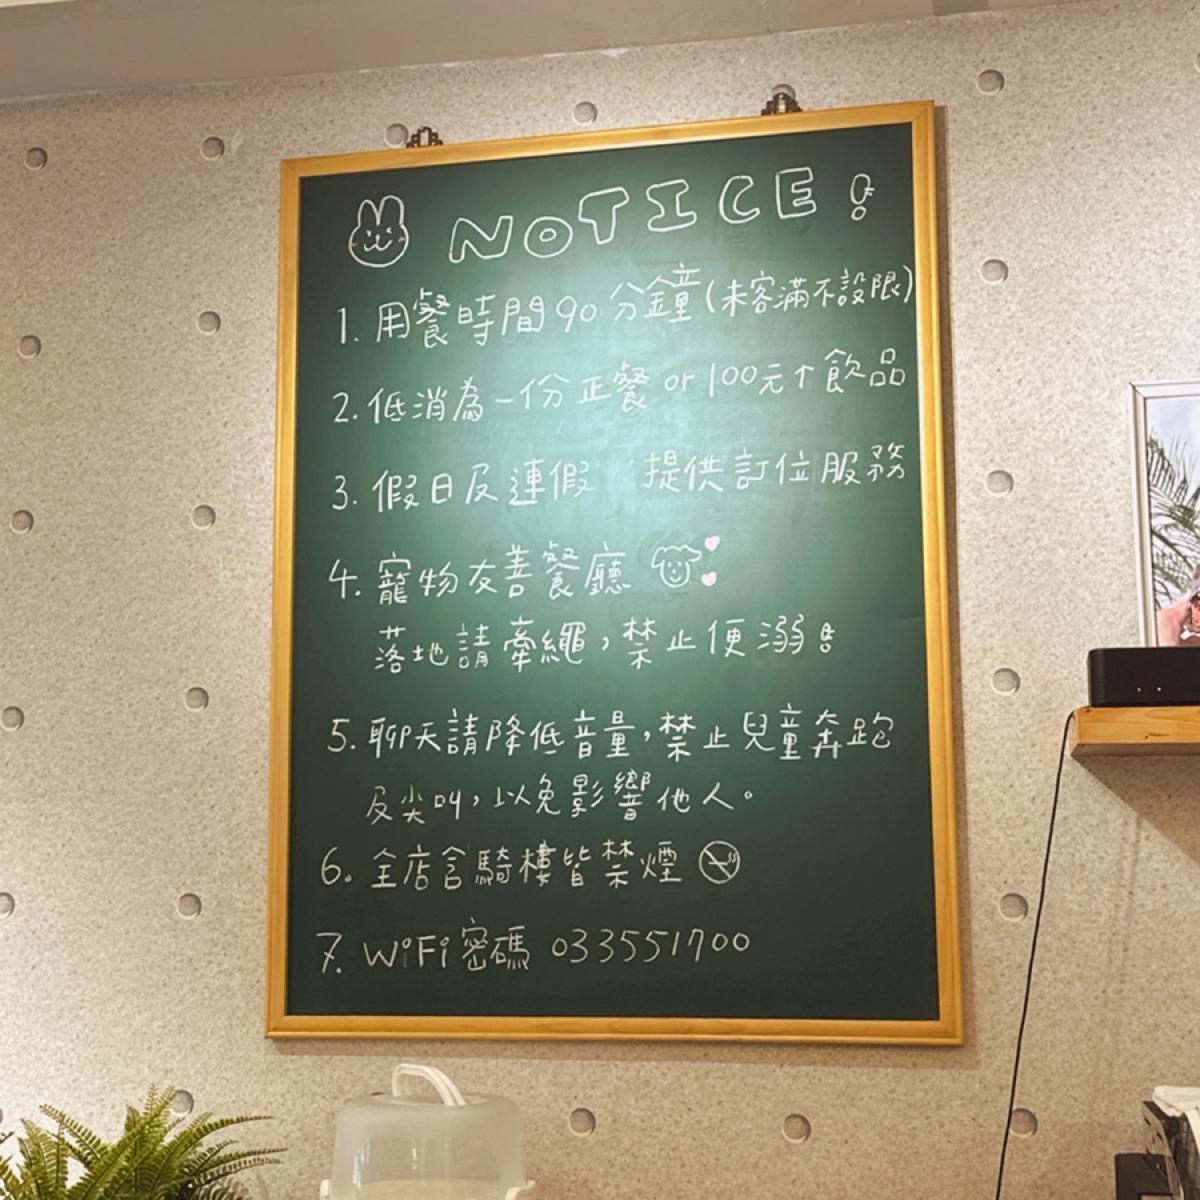 NOTICE!
1. 用餐時間90分鐘(未客滿不設限)
2. 低消為一份正餐 or 100元↑飲品
3. 假日及連假 提供訂位服務
4. 寵物友善餐廳
落地請牽繩,禁止便溺!
5. 聊天請降低音量,禁止兒童奔跑
及尖叫,以免影響他人。
6. 全店含騎樓皆禁煙
7. WiFi密碼 033551700